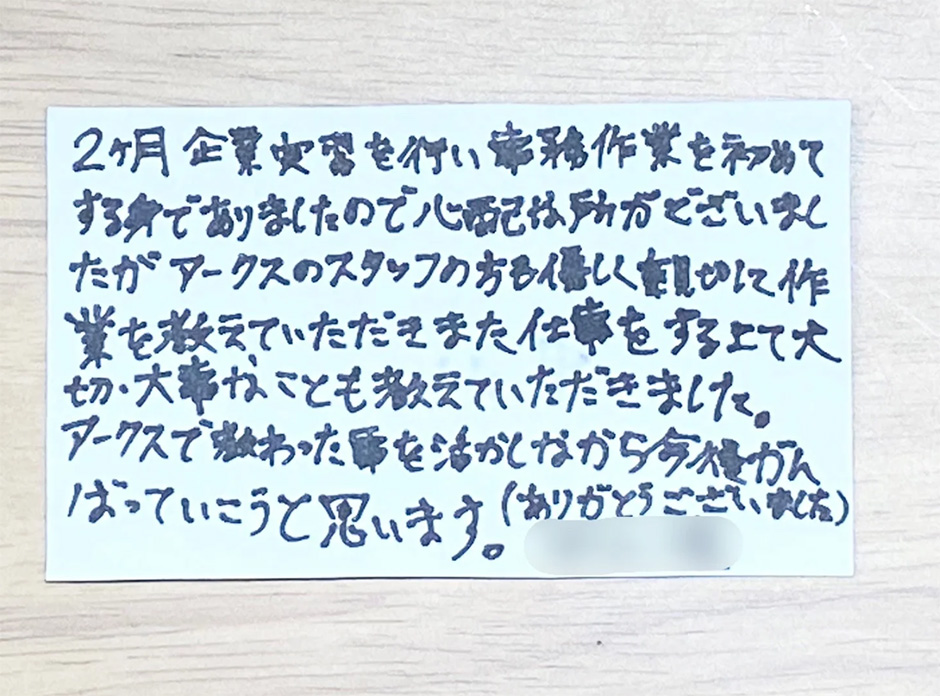 2ヶ月 企業実習を行い事務作業を初めて
する身でありましたので心配な所がございまし
たがアークスのスタッフの方も優しく親切に作
業を教えていただきまた仕事をする上で大
切・大事なことも教えていただきました。
アークスで教わった事を活かしながら今後がん
ばっていこうと思います。(ありがとうございました)